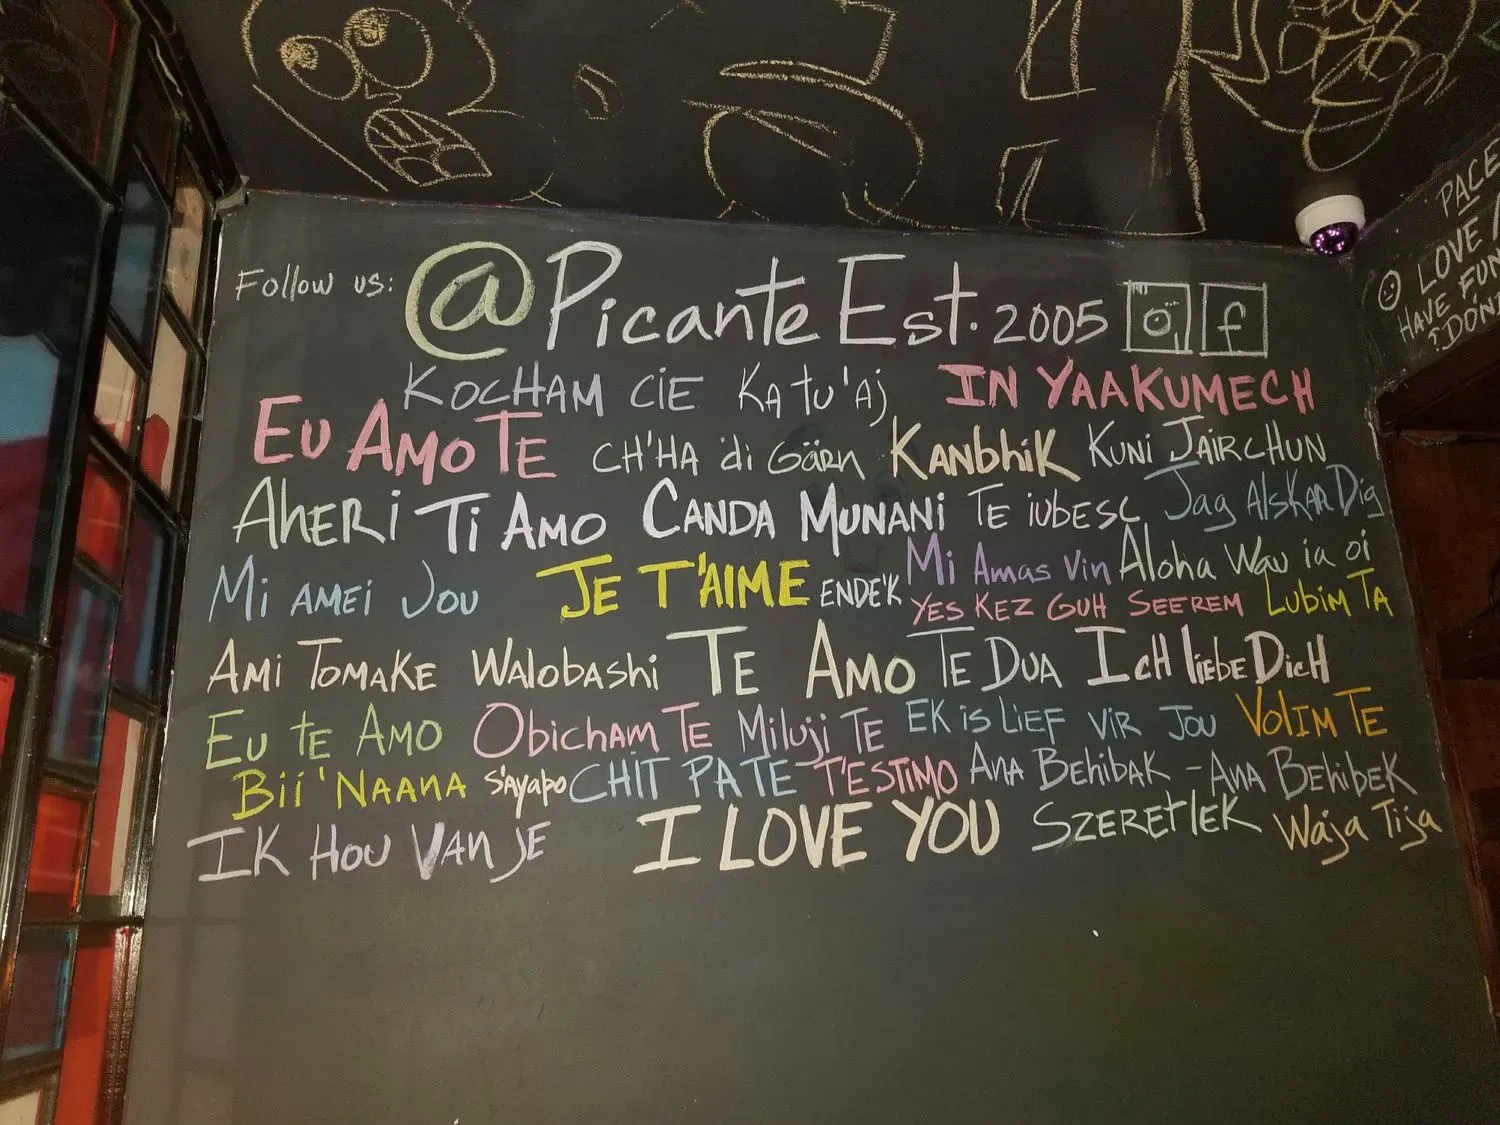 Follow us: @Picante Est. 2005 f
KOCHAM CiE KA tu'Aj IN YAAKUMECH
EU AMO TE CH'HA di Gärn KANbhiK KUNi JAIRCHUN
AHERi Ti AMO CANDA MUNANi Te iubesc Jag AlSKAR Dig
Mi AMEi Jou JE T'AIME ENDE'K Mi Amas Vin Aloha Wau ia oi
YES KEZ GUH SEEREM LUBiM TA
AMi TOMAKE WAlobAShi TE AMO TE DUA ICH liebe DicH
Eu te AMO Obicham Te Miluji Te EK is LiEF ViR JOU VOLIM TE
Bii 'NAANA S'Ayapo CHiT PA TE T'ESTiMO ANA BEHibAK - ANA BEHibEK
IK HOU VAN JE I LOVE YOU SZERETlEK Waja Tija
PACE
LOVE
HAVE FUN